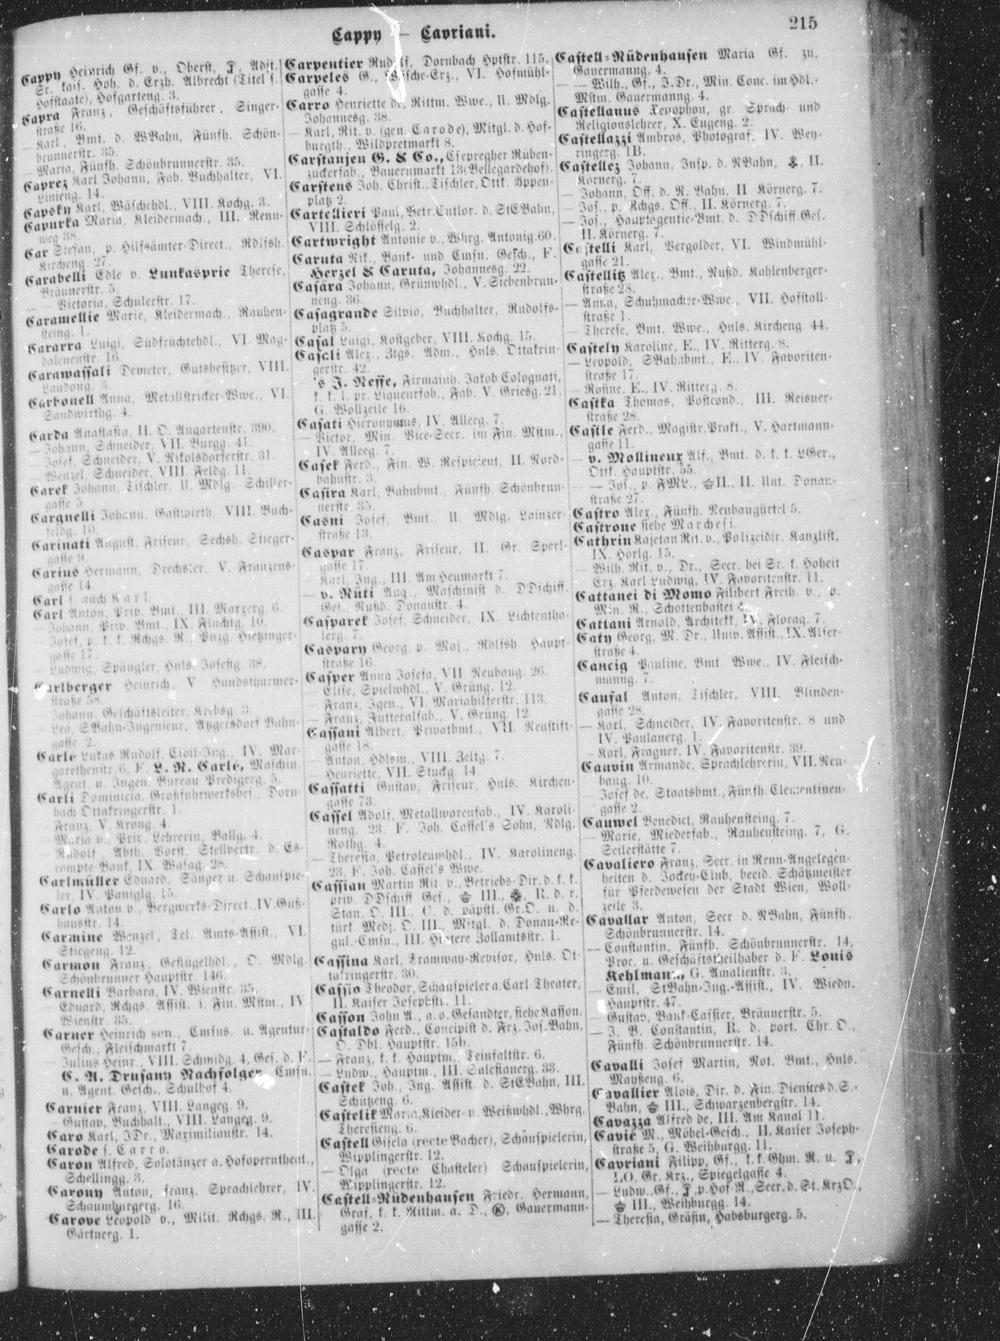 Cappy — Capriani.
215
Cappy Heinrich Gf. v., Oberst, Adjt.
Sr. kais. Hoh. d. Erzh. Albrecht (Titel s.
Hofstaate), Hofgarteng. 3.
Capra Franz, Geschäftsführer, Singer-
straße 16.
— Karl, Bmt. d. WBahn, Fünfh. Schön-
brunnerstr. 35.
— Maria, Fünfh. Schönbrunnerstr. 35.
Caprez Karl Johann, Fab. Buchhalter, VI.
Linieng. 14.
Capsky Karl, Wäschehdl., VIII. Kochg. 3.
Capurka Maria, Kleidermach., III. Renn-
weg 38.
Car Stefan, p. Hilfsämter-Direct., Rdlfsh.
Kircheng. 27.
Carabelli Edle v. Lunkasprie Therese,
Bräunerstr. 5.
— Victoria, Schulerstr. 17.
Caramellie Marie, Kleidermach., Rauhen-
steing. 1.
Cararra Luigi, Südfrüchtehdl., VI. Mag-
dalenenstr. 16.
Carawassali Demeter, Gutsbesitzer, VIII.
Laudong. 3.
Carbonell Anna, Metallstricker-Wwe., VI.
Sandwirthg. 4.
Carda Anastasia, II. O. Augartenstr. 390.
— Johann, Schneider, VII. Burgg. 41.
— Josef, Schneider, V. Nikolsdorferstr. 31.
— Wenzel, Schneider, VIII. Feldg. 11.
Carek Johann, Tischler, U. Mdlg. Schiller-
gasse 5
Cargnelli Johann, Gastwirth, VIII. Buch-
feldg. 10.
Carinati August, Friseur, Sechsh. Stieger-
gasse 9.
Carius Hermann, Drechsler, V. Franzens-
gasse 14.
Carl s. auch Karl.
Carl Anton, Priv. Bmt., III. Marxerg. 6.
— Johann, Priv. Bmt., IX. Fluchtg. 10.
— Josef, p. k. k. Rchgs. R., Pnzg. Hietzinger-
gasse 17.
— Ludwig, Spängler, Hnls. Josefig. 38.
Carlberger Heinrich, V. Hundsthurmer-
straße 58.
— Johann, Geschäftsleiter, Krebsg. 3.
— Leo, SBahn-Ingenieur, Atzgersdorf Bahn-
gasse 2.
Carle Lukas Rudolf, Civil-Ing., IV. Mar-
garethenstr. 6, F. L. R. Carle, Maschin.
Agent. u. Ingen. Bureau Predigerg. 5.
Carli Dominicia, Großfuhrwerksbes., Dorn-
bach Ottakringerstr. 1.
— Franz, V. Krong. 4.
— Maria v., Priv. Lehrerin, Ballg. 4.
— Rudolf, Abth. Vorst. Stellvertr. d. Es-
compte-Bank, IX. Wasag. 28.
Carlmüller Eduard, Sänger u. Schauspie-
ler, IV. Paniglg. 15.
Carlo Anton v., Bergwerks-Direct. IV. Guß-
hausstr. 14.
Carmine Wenzel, Tel. Amts-Assist., VI.
Stiegeng. 12.
Carmon Franz, Geflügelhdl., O. Mdlg.
Schönbrunner Hauptstr. 146.
Carnelli Barbara, IV. Wienstr. 35.
— Eduard, Rchgs. Assist. i. Fin. Mstm., IV.
Wienstr. 35.
Carner Heinrich sen., Cmsns. u. Agentur-
Gesch., Fleischmarkt 7.
— Julius Heinr., VIII. Schmidg. 4, Ges. d. F.
C. A. Drusany Nachfolger Cmsn.
u. Agent. Gesch., Schulhof 4.
Carnier Franz, VIII. Langeg. 9.
— Gustav, Buchhalt., VIII. Langeg. 9.
Caro Karl, JDr., Maximilianstr. 14.
Carode s. Carro.
Caron Alfred, Solotänzer a. Hofoperntheat.,
Schellingg. 3.
Carony Anton, franz. Sprachlehrer, IV.
Schaumburgerg. 16.
Carove Leopold v., Milit. Rchgs. R., III.
Gärtnerg. 1.
Carpentier Rudolf, Dornbach Hptstr. 115.
Carpeles G., Wäsche-Erz., VI. Hofmühl-
gasse 4.
Carro Henriette de, Rittm. Wwe., U. Mdlg.
Johannesg. 38.
— Karl, Rit. v. (gen. Carode), Mitgl. d. Hof-
burgth., Wildpretmarkt 8.
Carstanjen G. & Co., Csepregher Rüben-
zuckerfab., Bauernmarkt 13 (Bellegardehof).
Carstens Joh. Christ., Tischler, Ottk. Appen-
platz 2.
Cartellieri Paul, Betr. Cntlor. d. StEBahn,
VIII. Schlösselg. 2.
Cartwright Antonie v., Whrg. Antonig. 60.
Caruta Nik., Bank- und Cmsn. Gesch., F.
Herzel & Caruta, Johannesg. 22.
Casara Johann, Grünwhdl., V. Siebenbrun-
neng. 36.
Casagrande Silvio, Buchhalter, Rudolfs-
platz 5.
Casal Luigi, Kostgeber, VIII. Kochg. 15.
Casali Alex., Ztgs. Adm., Hnls. Ottakrin-
gerstr. 42.
's J. Neffe, Firmainh. Jakob Colognati,
k. k. l. pr. Liqueurfab., Fab. V. Griesg. 21,
G. Wollzeile 16.
Casati Hieronymus, IV. Alleeg. 7.
— Victor, Min. Vice-Secr. im Fin. Mstm.,
IV. Alleeg. 7.
Casek Ferd., Fin. W. Respicient, II. Nord-
bahnstr. 3.
Casira Karl, Bahnbmt., Fünfh. Schönbrun-
nerstr. 35.
Casni Josef, Bmt. U. Mdlg. Lainzer-
straße 13.
Caspar Franz, Friseur, II. Gr. Sperl-
gasse 17.
— Karl, Ing., III. Am Heumarkt 7.
— v. Nüti Aug., Maschinist d. DDschiff.
Ges., Nußd. Donaustr. 4.
Casparek Josef, Schneider, IX. Lichtentha-
lerg. 7.
Caspary Georg, p. Maj., Rdlfsh. Haupt-
straße 16.
Casper Anna Josefa, VII. Neubaug. 26.
— Elise, Spielwhdl., V. Grüng. 12.
— Franz, Igen., VI. Mariahilferstr. 113.
— Franz, Futteralfab., V. Grüng. 12.
Cassani Albert, Privatbmt., VII. Neustift-
gasse 18.
— Anton, Hdlsm., VIII. Zeltg. 7.
— Henriette, VII. Stuckg. 14.
Cassatti Gustav, Friseur, Hnls. Kirchen-
gasse 73.
Cassel Adolf, Metallwarenfab., IV. Karoli-
neng. 23, F. Joh. Cassel's Sohn, Ndlg.
Rothg. 4.
— Theresia, Petroleumhdl., IV. Karolineng.
23, F. Joh. Cassel's Wwe.
Cassian Martin Rit. v., Betriebs-Dir. d. k. k.
priv. DDschiff Ges., III., R. d. r.
Stan. O. III., C. d. päpstl. Gr. O. u. d.
türk. Medj. O. III., Mitgl. d. Donau-Re-
gul.-Cmsn., III. Hintere Zollamtsstr. 1.
Cassina Karl, Tramway-Revisor, Hnls. Ot-
takringerstr. 30.
Cassio Theodor, Schauspieler a. Carl Theater,
II. Kaiser Josephstr. 11.
Casson John A., a. o. Gesandter, siehe Kasson.
Castaldo Ferd., Concipist d. Frz. Jos. Bahn,
O. Dbl. Hauptstr. 15b.
— Franz, k. k. Hauptm., Teinfaltstr. 6.
— Ludw., Hauptm., III. Salesianerg. 33.
Castek Joh., Ing. Assist. d. StEBahn, III.
Schützeng. 6.
Castelik Maria, Kleider- u. Weißwhdl., Whrg.
Theresieng. 6.
Castell Gisela (recte Bacher), Schauspielerin,
Wipplingerstr. 12.
— Olga (recte Chasteler) Schauspielerin,
Wipplingerstr. 12.
Castell-Rüdenhausen Friedr. Hermann,
Graf, k. k. Rittm. a. D., Gauermann-
gasse 2.
Castell-Rüdenhausen Maria Gf. zu,
Gauermanng. 4.
— — Wilh., Gf., J.Dr., Min. Conc. im Hdl.-
Mstm. Gauermanng. 4.
Castellanus Xenophon, gr. Sprach- und
Religionslehrer, X. Eugeng. 2.
Castellazzi Ambros, Photograf, IV. Wey-
ringerg. 1B.
Castellez Johann, Insp. d. NBahn, II.
Körnerg. 7.
— Johann, Off. d. N. Bahn, II. Körnerg. 7.
— Jos., p. Rchgs. Off., II. Körnerg. 7.
— Jos., Hauptagentie-Bmt. d. DDschiff. Ges.
II. Körnerg. 7.
Castelli Karl, Vergolder, VI. Windmühl-
gasse 21.
Castellitz Alex., Bmt., Nußd. Kahlenberger-
straße 28.
— Anna, Schuhmacher-Wwe., VII. Hofstall-
straße 1.
— Therese, Bmt. Wwe., Hnls. Kircheng. 44.
Castely Karoline, E., IV. Ritterg. 8.
— Leopold, SBahnbmt., E., IV. Favoriten-
straße 17.
— Rosine, E., IV. Ritterg. 8.
Castka Thomas, Postcond., III. Reisner-
straße 28.
Castle Ferd., Magistr. Prakt., V. Hartmann-
gasse 11.
— v. Mollineux Alf., Bmt. d. k. k. LGer.,
Ottk. Hauptstr. 55.
— — Jos., p. FML., II., II. Unt. Donau-
straße 27.
Castro Alex., Fünfh. Neubaugürtel 5.
Castrone siehe Marchesi.
Cathrin Kajetan Rit. v., Polizeidir. Kanzlist,
IX. Hörlg. 15.
— Wilh. Rit. v., Dr., Secr. bei Sr. k. Hoheit
Erz. Karl Ludwig, IV. Favoritenstr. 11.
Cattanei di Momo Filibert Freih. v., p.
Min. R., Schottenbastei
Cattani Arnold, Architekt, IV. Florag. 7.
Caty Georg, M. Dr., Univ. Assist., IX. Alser-
straße 4.
Caucig Pauline, Bmt. Wwe., IV. Fleisch-
manng. 7.
Causal Anton, Tischler, VIII. Blinden-
gasse 28.
— Karl, Schneider, IV. Favoritenstr. 8 und
IV. Paulanerg. 1.
— Karl, Fragner, IV. Favoritenstr. 39.
Cauvin Armande, Sprachlehrerin, VII. Neu-
baug. 10.
— Josef de, Staatsbmt., Fünfh. Clementinen-
gasse 2.
Cauwel Benedict, Rauhensteing. 7.
— Marie, Miederfab., Rauhensteing. 7, G.
Seilerstätte 7.
Cavaliero Franz, Secr. in Renn-Angelegen-
heiten d. Jockey-Club, beeid. Schätzmeister
für Pferdewesen der Stadt Wien, Woll-
zeile 3.
Cavallar Anton, Secr. d. NBahn, Fünfh.
Schönbrunnerstr. 14.
— Constantin, Fünfh. Schönbrunnerstr. 14,
Proc. u. Geschäftstheilhaber d. F. Louis
Kehlmann, G. Amalienstr. 3.
— Emil, StBahn-Ing.-Assist., IV. Wiedn.
Hauptstr. 47.
— Gustav, Bank-Cassier, Bräunerstr. 5.
— J. B. Constantin, R. d. port. Chr. O.,
Fünfh. Schönbrunnerstr. 14.
Cavalli Josef Martin, Not. Bmt., Hnls.
Mayßeng. 6.
Cavallier Alois, Dir. d. Fin. Dienstes d. S.-
Bahn, III., Schwarzenbergstr. 14.
Cavazza Alfred de, III. Am Kanal 11.
Cavié M., Möbel-Gesch., II. Kaiser Joseph-
straße 5, G. Weihburgg. 11.
Cavriani Filipp, Gf., k. k. Ghm. R. u.
LO. Gr. Krz., Spiegelgasse 4.
— Ludw., Gf., p. Hof-R., Secr. d. St. KrzO.,
III., Weihburgg. 14.
— Theresia, Gräfin, Habsburgerg. 5.